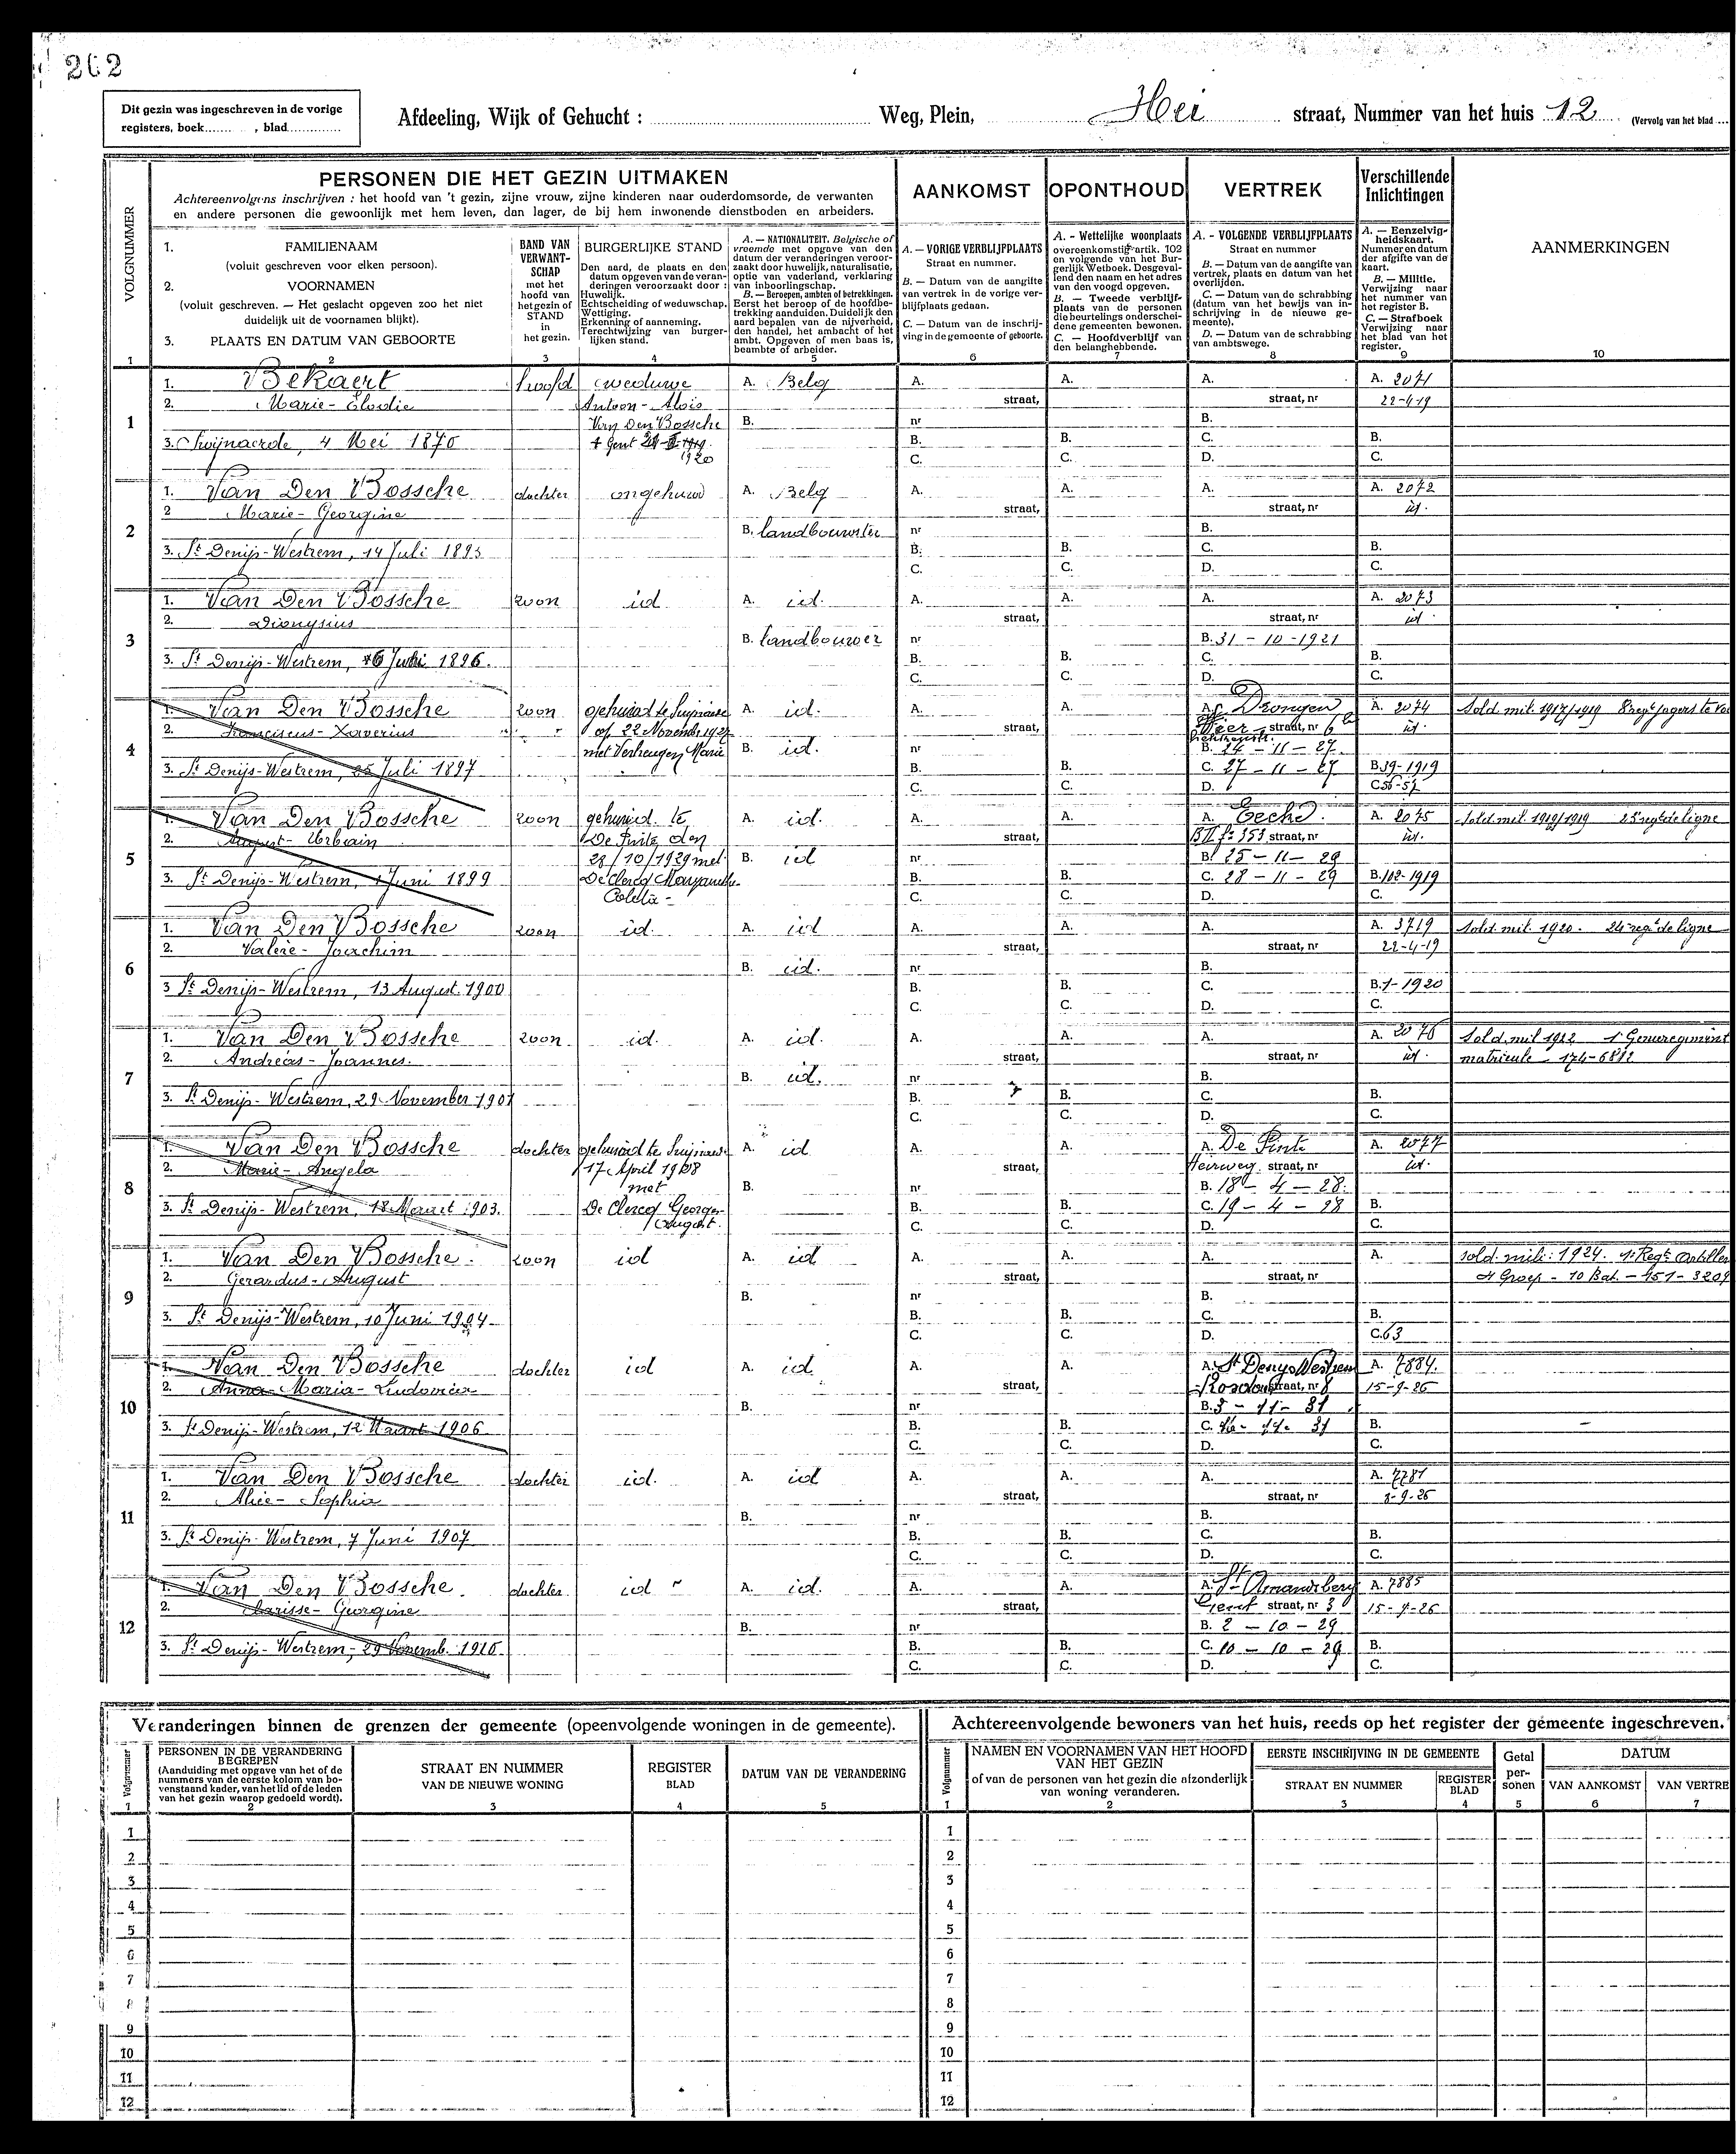 262
Dit gezin was ingeschreven in de vorige
registers, boek...... , blad.............
Afdeeling, Wijk of Gehucht : Weg, Plein, Hei straat, Nummer van het huis 12 (Vervolg van het blad
PERSONEN DIE HET GEZIN UITMAKEN
Achtereenvolgens inschrijven : het hoofd van 't gezin, zijne vrouw, zijne kinderen naar ouderdomsorde, de verwanten
en andere personen die gewoonlijk met hem leven, dan lager, de bij hem inwonende dienstboden en arbeiders.
AANKOMST OPONTHOUD VERTREK Verschillende Inlichtingen
VOLGNUMMER
1. FAMILIENAAM
(voluit geschreven voor elken persoon).
2. VOORNAMEN
(voluit geschreven. — Het geslacht opgeven zoo het niet
duidelijk uit de voornamen blijkt).
3. PLAATS EN DATUM VAN GEBOORTE
BAND VAN
VERWANT-
SCHAP
met het
hoofd van
het gezin of
STAND
in
het gezin.
BURGERLIJKE STAND
Den aard, de plaats en den
datum opgeven van de veran-
deringen veroorzaakt door :
Huwelijk.
Echtscheiding of weduwschap.
Wettiging.
Erkenning of aanneming.
Terechtwijzing van burger-
lijken stand.
A. — NATIONALITEIT. Belgische of
vreemde met opgave van den
datum der veranderingen veroor-
zaakt door huwelijk, naturalisatie,
optie van vaderland, verklaring
van inboorlingschap.
B. — Beroepen, ambten of betrekkingen.
Eerst het beroep of de hoofdbe-
trekking aanduiden. Duidelijk den
aard bepalen van de nijverheid,
den handel, het ambacht of het
ambt. Opgeven of men baas is,
beambte of arbeider.
A. — VORIGE VERBLIJFPLAATS
Straat en nummer.
B. — Datum van de aangifte
van vertrek in de vorige ver-
blijfplaats gedaan.
C. — Datum van de inschrij-
ving in de gemeente of geboorte.
A. - Wettelijke woonplaats
overeenkomstig artik. 102
en volgende van het Bur-
gerlijk Wetboek. Desgeval-
lend den naam en het adres
van den voogd opgeven.
B. — Tweede verblijf-
plaats van de personen
die beurtelings onderschei-
dene gemeenten bewonen.
C. — Hoofdverblijf van
den belanghebbende.
A. - VOLGENDE VERBLIJFPLAATS
Straat en nummer
B. — Datum van de aangifte van
vertrek, plaats en datum van het
overlijden.
C. — Datum van de schrabbing
(datum van het bewijs van in-
schrijving in de nieuwe ge-
meente).
D. — Datum van de schrabbing
van ambtswege.
A. — Eenzelvig-
heidskaart.
Nummer en datum
der afgifte van de
kaart.
B. — Militie.
Verwijzing naar
het nummer van
het register B.
C. — Strafboek
Verwijzing naar
het blad van het
register.
AANMERKINGEN
1 2 3 4 5 6 7 8 9 10
1. Bekaert hoofd weduwe A. Belg A. A. A. A. 2071
2. Marie-Elodie Antoon-Alois straat, straat, nr 22-4-19
1 Van Den Bossche B. nr B.
3. Zwijnaerde, 4 Mei 1870 + Gent B. B. C. B.
1920 C. C. D. C.
1. Van Den Bossche dochter ongehuwd A. Belg A. A. A. A. 2072
2 Marie-Georgine straat, straat, nr id.
2 B. landbouwster nr B.
3. St Denijs-Westrem, 14 Juli 1893 B. B. C. B.
C. C. D. C.
1. Van Den Bossche zoon id A. id. A. A. A. A. 2073
2. Dionysius straat, straat, nr id.
3 B. landbouwer nr B. 31-10-1921
3. St Denijs-Westrem, Juli 1896. B. B. C. B.
C. C. D. C.
1. Van Den Bossche zoon gehuwd te A. id. A. A. A. Drongen A. 2074 Sold. mil. 1917/1919
2. Franciscus-Xaverius op 22 November 1927 straat, straat, nr 6 id.
4 met Verheugen Marie B. id. nr B. 24-11-27
3. St Denijs-Westrem, 25 Juli 1897 B. B. C. 27-11-27 B 39-1919
C. C. D. C 56-57
1. Van Den Bossche zoon gehuwd te A. id. A. A. A. Eecke A. 2075 Sold. mil. 1919/1919 regt de ligne
2. August-Urbain De Pinte den straat, B II f° 353 straat, nr id.
5 28/10/1929 met B. id nr B. 25-11-29
3. St Denijs-Westrem, 1 Juni 1899 De Clercq B. B. C. 28-11-29 B. 102-1919
Coleta- C. C. D. C.
1. Van Den Bossche zoon id. A. id A. A. A. A. 3719 Sold. mil. 1920. 24 regt de ligne
2. Valère-Joachim straat, straat, nr 22-4-19
6 B. id. nr B.
3 St Denijs-Westrem, 13 August. 1900 B. B. C. B. 1-1920
C. C. D. C.
1. Van Den Bossche zoon id. A. id. A. A. A. A. 2076 Sold. mil 1922 1e Genieregiment
2. Andreas-Joannes. straat, straat, nr id. matricule 174-6812
7 B. id. nr B.
3. St Denijs-Westrem, 29 November 1901 B. B. C. B.
C. C. D. C.
1. Van Den Bossche dochter gehuwd te A. id A. A. A. De Pinte A. 2077
2. Marie-Angela 17 April 1928 straat, Heirweg straat, nr id.
8 met B. nr B. 18-4-28.
3. St Denijs-Westrem, 18 Maart 1903. De Clercq George- B. B. C. 19-4-28 B.
August. C. C. D. C.
1. Van Den Bossche. zoon id A. id A. A. A. A. sold. mili: 1924. 1e Regt
2. Gerardus-August straat, straat, nr Groep - 10 Bat. - 151-3209
9 B. nr B.
3. St Denijs-Westrem, 10 Juni 1904- B. B. C. B.
C. C. D. C. 63
1. Van Den Bossche dochter id A. id A. A. A. St Denys Westrem A. 7884.
2. Anna-Maria-Ludovica straat, straat, nr 8 15-9-26
10 B. nr B. 5-11-31
3. St Denijs-Westrem, 12 Maart 1906 B. B. C. 16-11-31 B.
C. C. D. C.
1. Van Den Bossche dochter id. A. id A. A. A. A. 7781
2. Alice-Sophia straat, straat, nr 8-9-26
11 B. nr B.
3. St Denijs-Westrem, 7 Juni 1907 B. B. C. B.
C. C. D. C.
1. Van Den Bossche. dochter id A. id. A. A. A. St Amandsberg A. 7885
2. Clarisse-Georgine straat, Gent straat, nr 3 15-9-26
12 B. nr B. 2-10-29
3. St Denijs-Westrem, 29 Novemb. 1910 B. B. C. 10-10-29 B.
C. C. D. C.
Veranderingen binnen de grenzen der gemeente (opeenvolgende woningen in de gemeente).
Volgnummer
PERSONEN IN DE VERANDERING
BEGREPEN
(Aanduiding met opgave van het of de
nummers van de eerste kolom van bo-
venstaand kader, van het lid of de leden
van het gezin waarop gedoeld wordt).
STRAAT EN NUMMER
VAN DE NIEUWE WONING
REGISTER
BLAD
DATUM VAN DE VERANDERING
1 2 3 4 5
1
2
3
4
5
6
7
8
9
10
11
12
Achtereenvolgende bewoners van het huis, reeds op het register der gemeente ingeschreven.
Volgnummer
NAMEN EN VOORNAMEN VAN HET HOOFD
VAN HET GEZIN
of van de personen van het gezin die afzonderlijk
van woning veranderen.
EERSTE INSCHRIJVING IN DE GEMEENTE
STRAAT EN NUMMER
REGISTER
BLAD
Getal
per-
sonen
DATUM
VAN AANKOMST VAN VERTRE
1 2 3 4 5 6 7
1
2
3
4
5
6
7
8
9
10
11
12